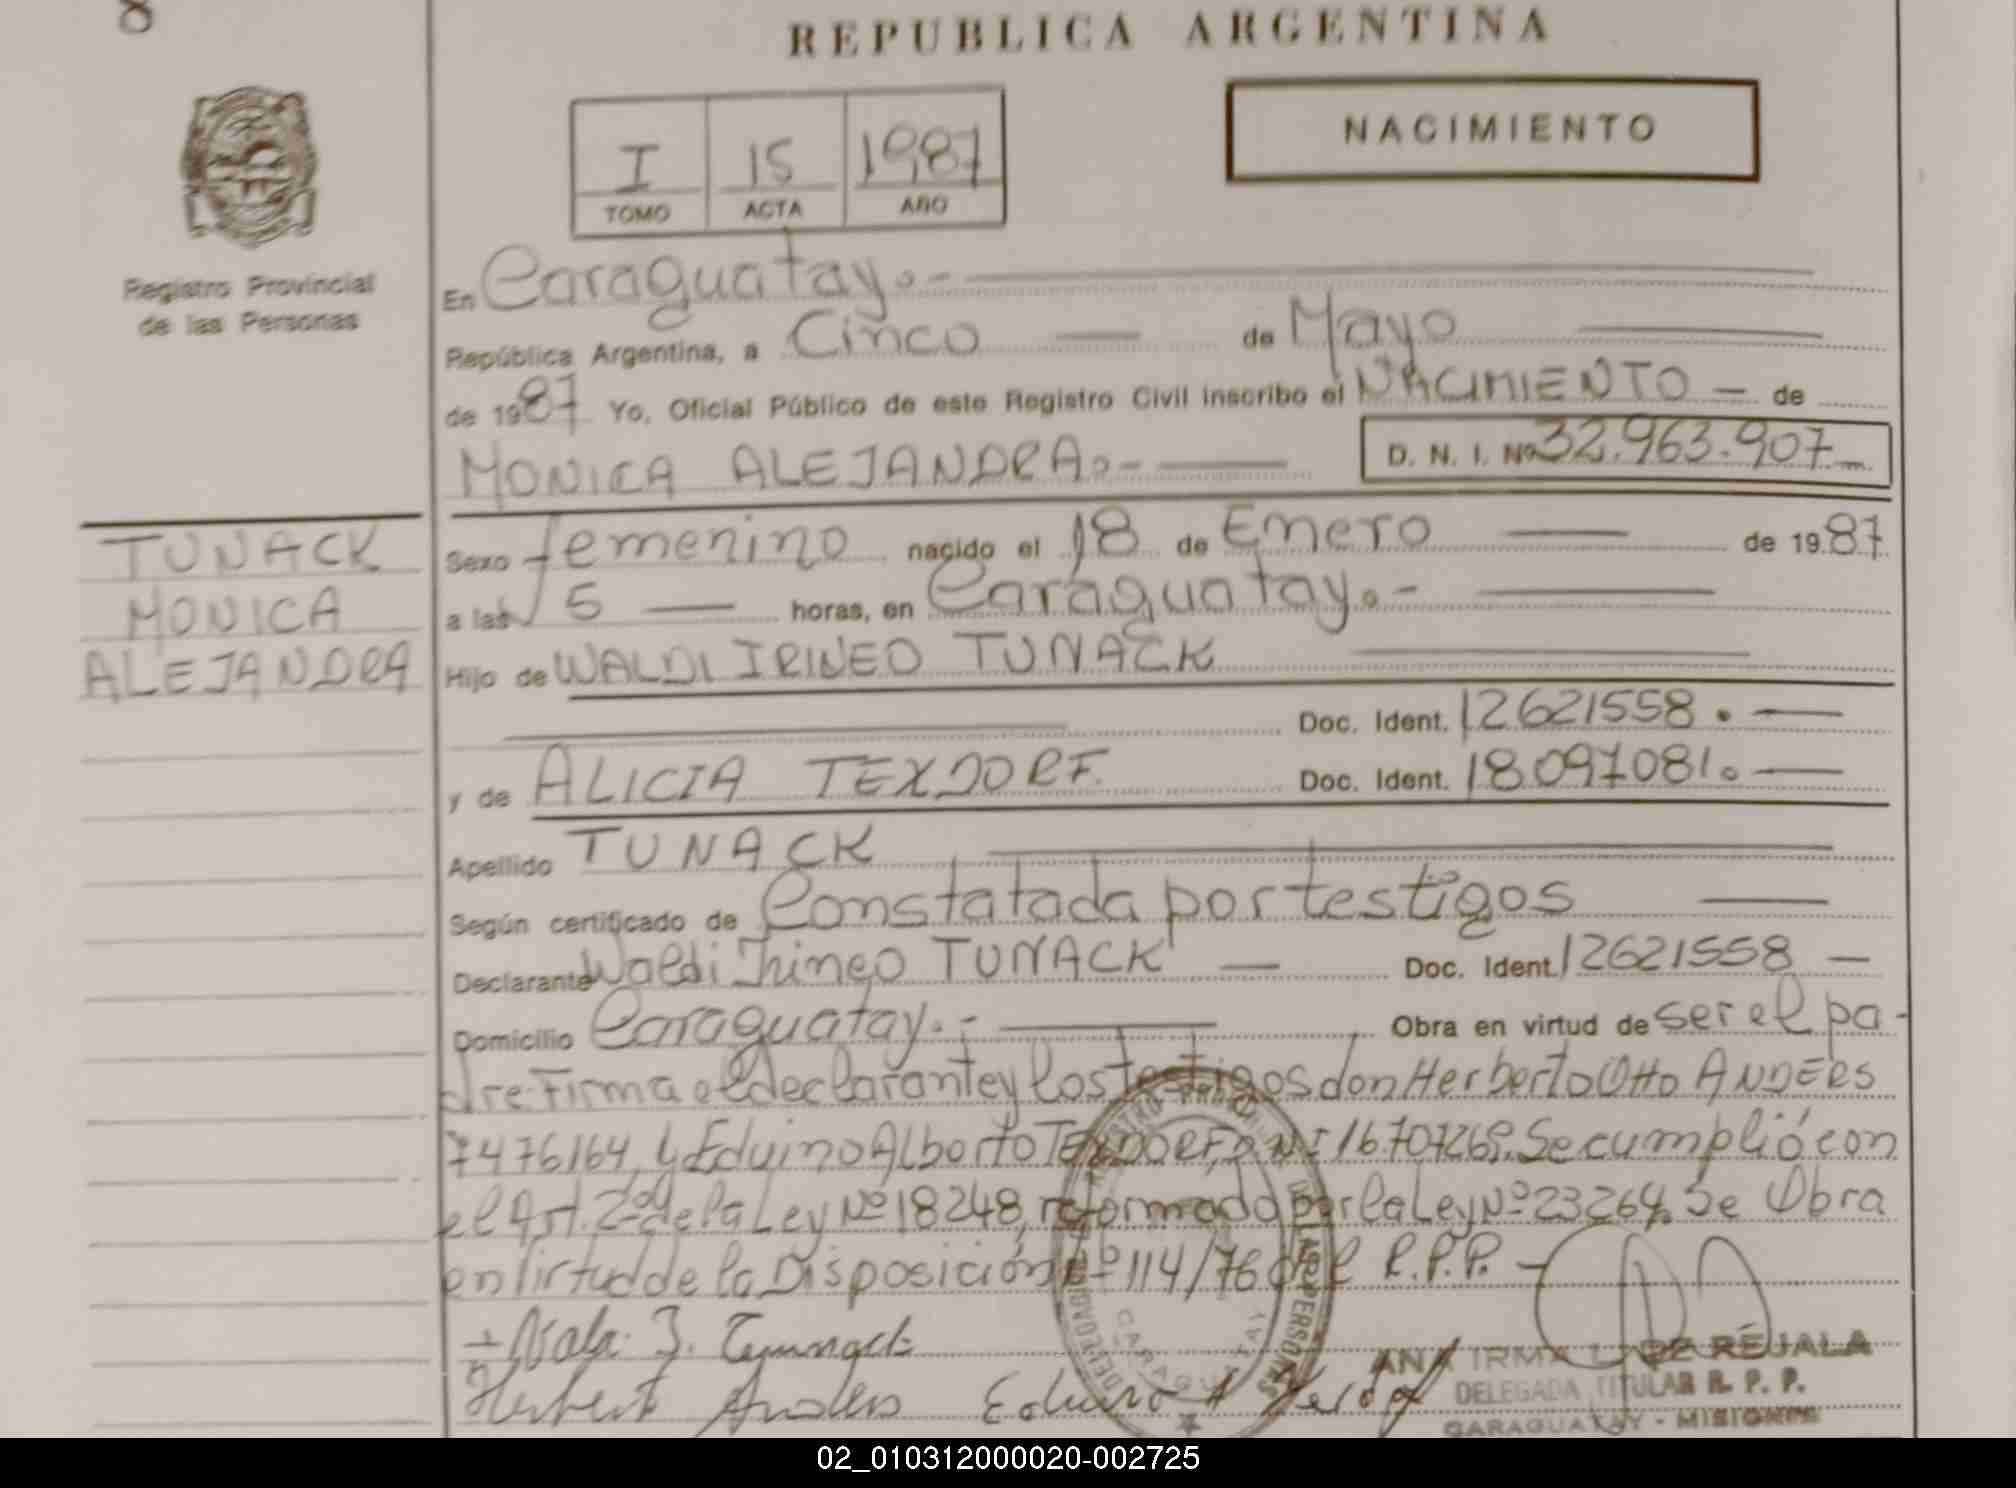 8
REPUBLICA ARGENTINA
NACIMIENTO
I 15 1987
TOMO ACTA AÑO
Registro Provincial
de las Personas
En Caraguatay.-
República Argentina, a Cinco de Mayo
de 1987 Yo, Oficial Público de este Registro Civil inscribo el NACIMIENTO - de
MONICA ALEJANDRA.- D. N. I. Nº 32.963.907
TUNACK
MONICA
ALEJANDRA
Sexo femenino nacido el 18 de Enero de 1987
a las 15 horas, en Caraguatay.-
Hijo de WALDI IRINEO TUNACK
Doc. Ident. 12621558.
y de ALICIA TEXDORF. Doc. Ident. 18097081.
Apellido TUNACK
Según certificado de Constatada por testigos
Declarante Waldi Irineo TUNACK - Doc. Ident. 12621558 -
Domicilio Caraguatay.- Obra en virtud de ser el pa-
dre. Firma el declarante y los testigos don Herberto Otto ANDERS
7476164, y Eduino Alberto TEXDORF, Se cumplió con
el Art. 2º de la Ley Nº 18248, reformado por la Ley Nº 23264. Se Obra
en Virtud de la Disposición Nº 114/76 del R.P.P. -
Herbert Anders
DE LAS PERSONAS
CARAGUATAY
ANA IRMA DE REJALA
DELEGADA TITULAR R. P. P.
CARAGUATAY - MISIONES
02_010312000020-002725